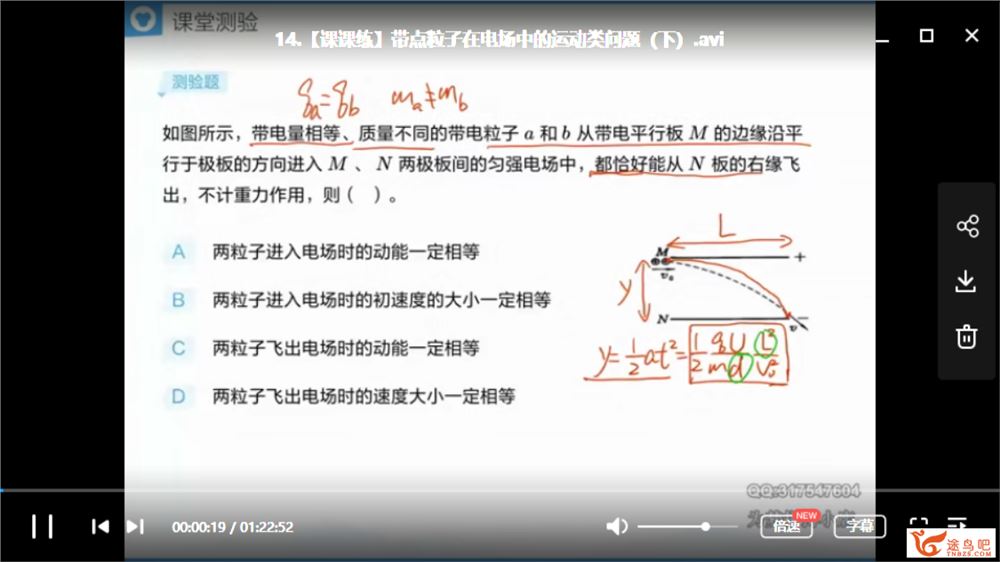 课堂测验
14.【课课练】带点粒子在电场中的运动类问题（下）.avi
测验题
qa=qb ma≠mb
如图所示，带电量相等、质量不同的带电粒子 a 和 b 从带电平行板 M 的边缘沿平
行于极板的方向进入 M 、N 两极板间的匀强电场中，都恰好能从 N 板的右缘飞
出，不计重力作用，则（ ）。
A 两粒子进入电场时的动能一定相等
B 两粒子进入电场时的初速度的大小一定相等
C 两粒子飞出电场时的动能一定相等
D 两粒子飞出电场时的速度大小一定相等
L
M +
v₀
y
N −
v
y=½at²=½ qU/md L²/v₀²
QQ:317547604
00:00:19 / 01:22:52
倍速
NEW
字幕
途鸟吧
TNBZS.COM